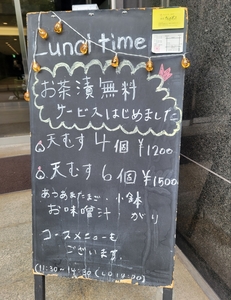 Lunch time
お茶漬無料
サービスはじめました
天むす4個 ¥1200
天むす6個 ¥1500
あつあつたまご・小鉢
お味噌汁 がり
コースメニューも
ございます。
(11:30~14:30